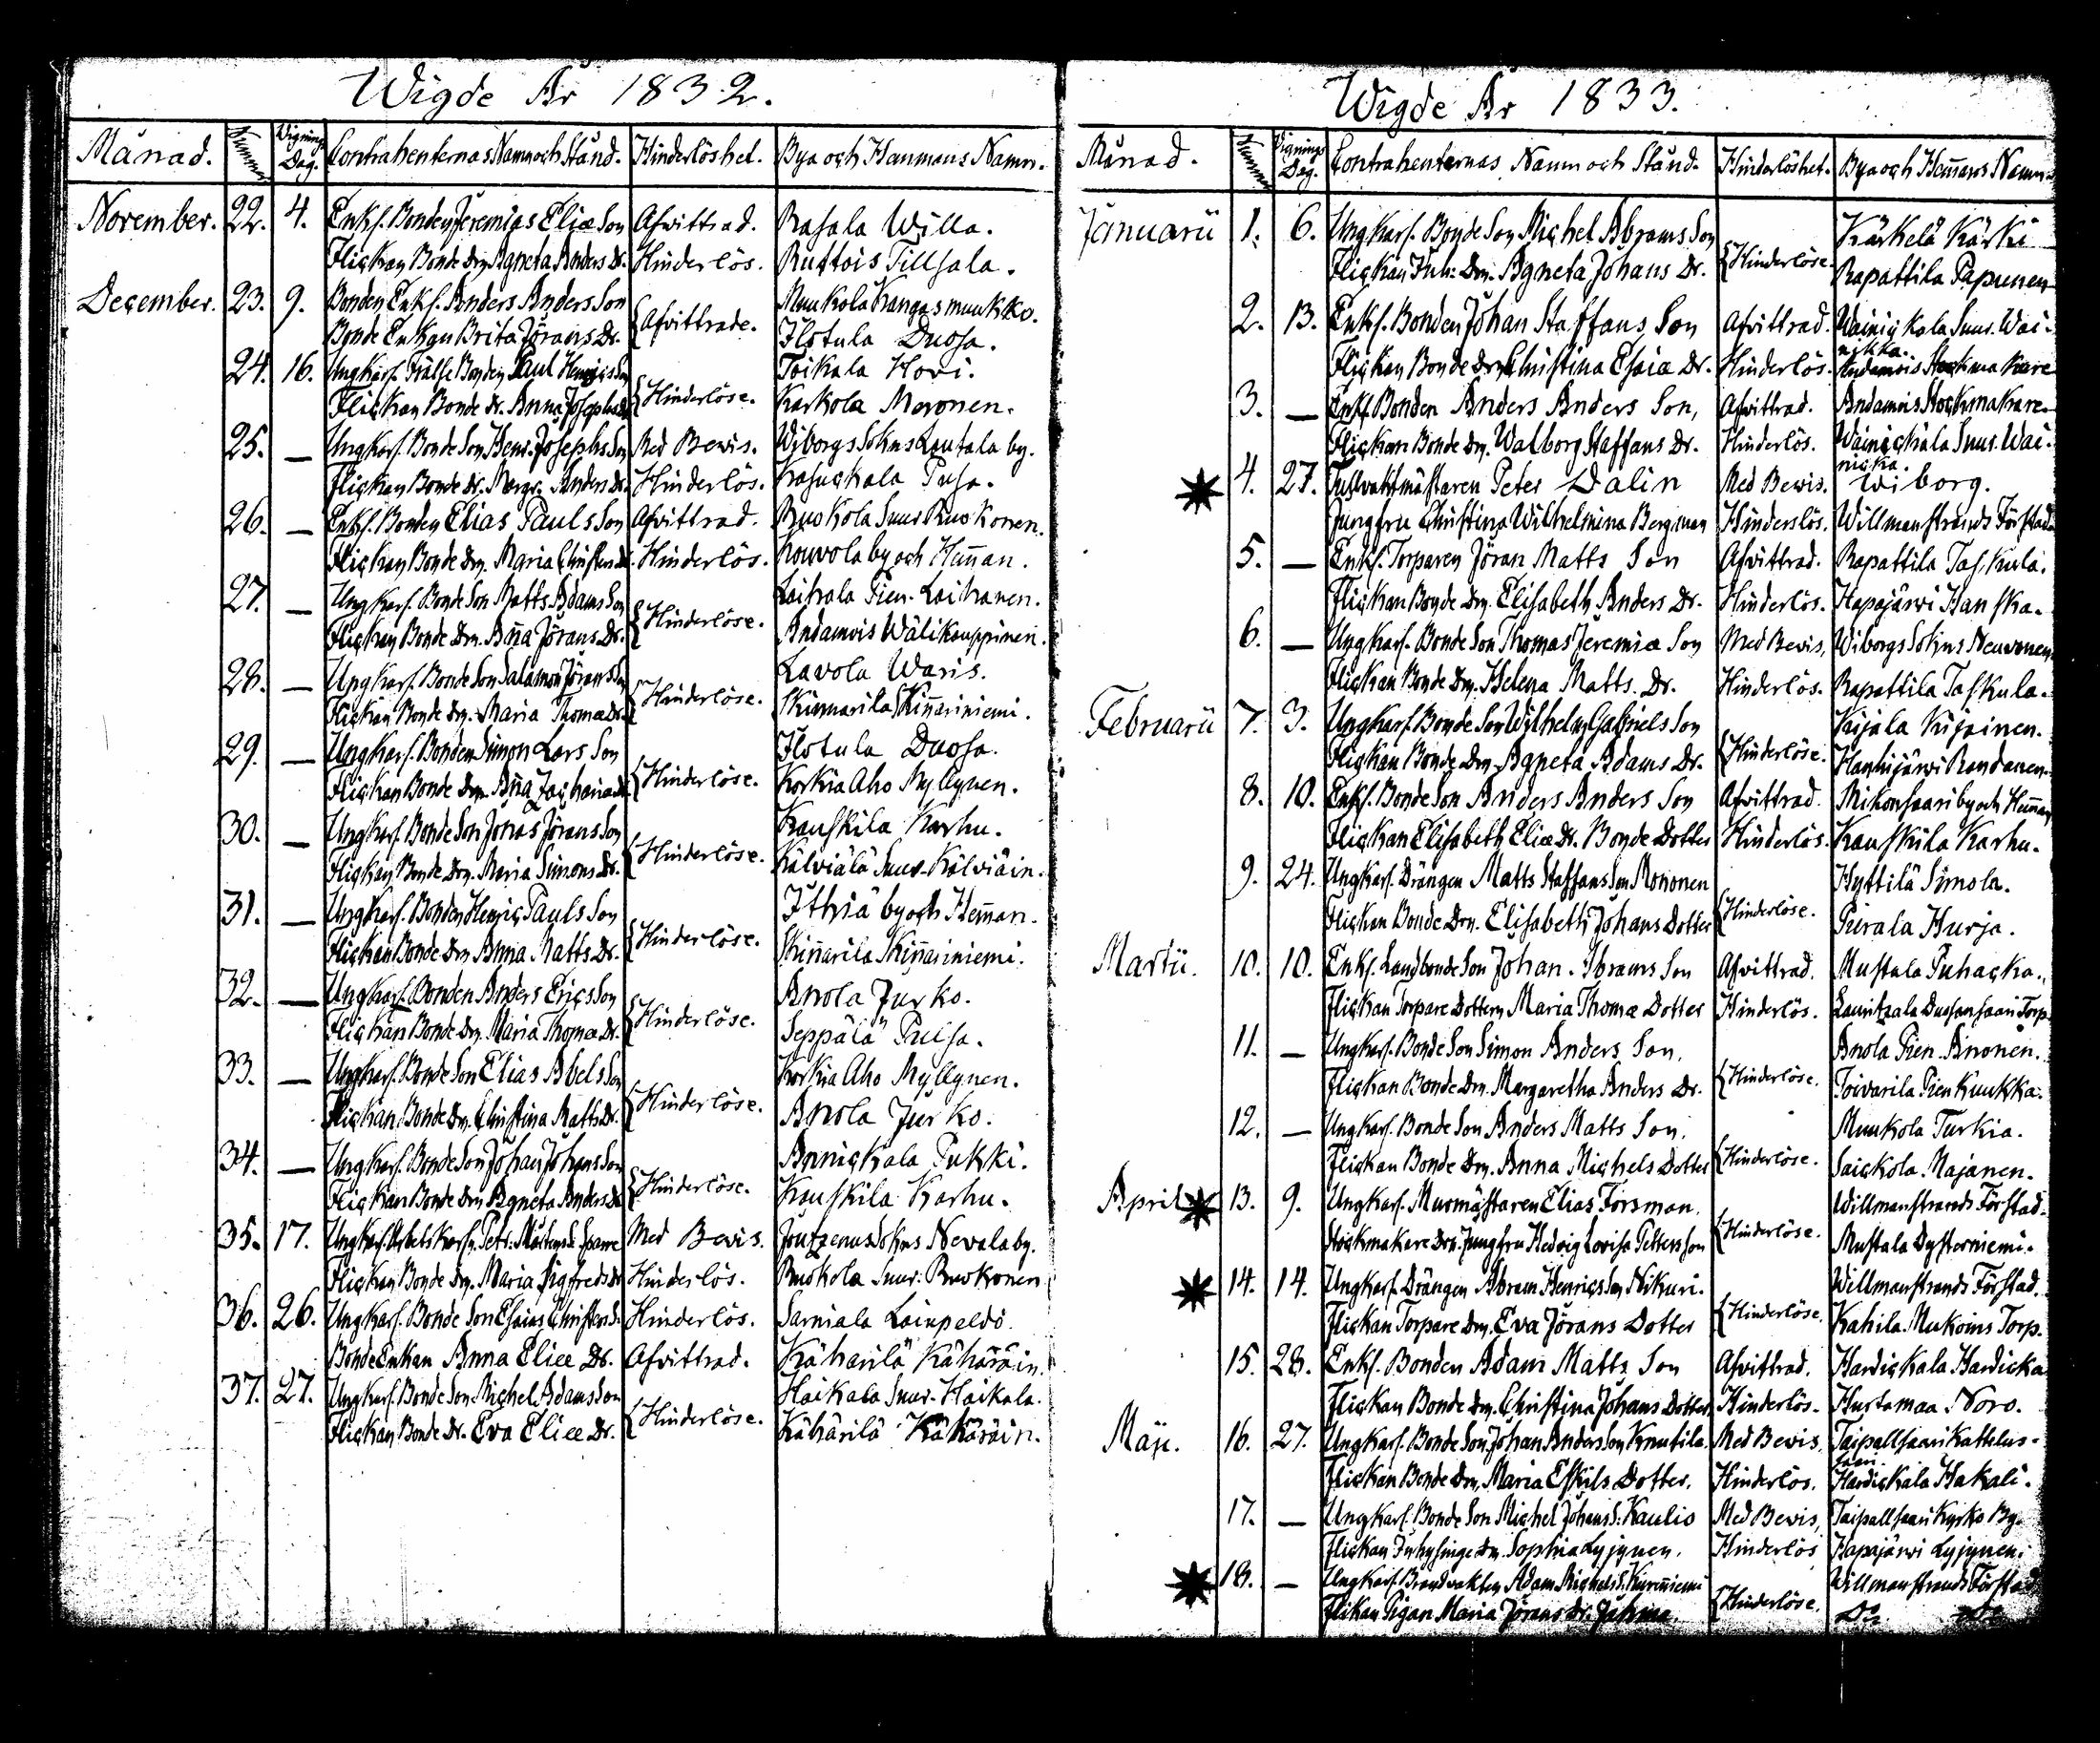 Wigde År 1832.
Månad. Nummer Vignings Dag. Contrahenternas Namn och Stånd. Hinderlöshet. Bya och Hemmans Namn.
November. 22. 4. Enkf. Bonden Jeremias Eliæ Son Afvittrad. Rasala Willa.
Flickan Bonde Drn Agneta Anders Dr. Hinderlös. Ruttois Tillsala.
December. 23. 9. Bonden Enkf. Anders Anders Son {Afvittrade. Muukola Kangasmuukko.
Bonde Enkan Brita Jörans Dr. Ilotula Duosa.
24. 16. Ungkarf. Frälse Bonden Paul Henrics Son {Hinderlöse. Toikala Hovi.
Flickan Bonde Dr. Anna Josephs Dr Karkola Moronen.
25. — Ungkarf. Bonde Son Henr. Josephs Son Med Bevis. Wiborgs Sokns Lautala by.
Flickan Bonde Dr. Margr. Anders Dr. Hinderlös. Kasuckala Pusa.
26. — Enkf. Bonden Elias Pauls Son Afvittrad. Ruokola Suur Ruokonen.
Flickan Bonde Drn. Maria Christers Dr. Hinderlös. Kouvola by och Heman.
27. — Ungkarf. Bonde Son Matts Adams Son {Hinderlöse. Laihala Pien-Laihanen.
Flickan Bonde Drn. Aña Jörans Dr. Andamois Wälikauppinen.
28. — Ungkarf. Bonde Son Salamon Jörans Son {Hinderlöse. Lavola Waris.
Flickan Bonde Drn. Maria Thomæ Dr. Skinnarila Skiñariniemi.
29. — Ungkarf. Bonden Simon Lars Son {Hinderlöse. Ilotula Duosa.
Flickan Bonde Drn. Aña Zachariæ Dr Korkia Aho Myllynen.
30. — Ungkarf. Bonde Son Jonas Jörans Son {Hinderlöse. Kauskila Karhu.
Flickan Bonde Drn. Maria Simons Dr. Kälviälä Suur-Kälviäin.
31. — Ungkarf. Bonden Henric Pauls Son {Hinderlöse. Ithiä by och Heman.
Flickan Bonde Drn Anna Matts Dr. Skiñarila Skiñariniemi.
32. — Ungkarf. Bonden Anders Erics Son {Hinderlöse. Anola Jurko.
Flickan Bonde Drn. Maria Thomæ Dr. Seppälä Pulsa.
33. — Ungkarf. Bonde Son Elias Abels Son {Hinderlöse. Korkia Aho Myllynen.
Flickan Bonde Dr. Christina Matts Dr. Anola Jurko.
34. — Ungkarf. Bonde Son Johan Johans Son {Hinderlöse. Annickala Pukki.
Flickan Bonde Drn Agneta Anders Dr Kauskila Karhu.
35. 17. Ungkarf. Arbets Karln. Petr. Mårtens S. Med Bevis. Joutzenus Sokns Nevala by.
Flickan Bonde Drn. Maria Sigfreds Dr Hinderlös. Ruokola Suur-Ruokonen
36. 26. Ungkarf. Bonde Son Esaias Christers S. Hinderlös. Sarniala Lainpeldo.
Bonde Enkan Anna Eliæ Dr. Afvittrad. Käharilä Kähäräin.
37. 27. Ungkarf. Bonde Son Michel Adams Son {Hinderlöse. Haikala Suur-Haikala.
Flickan Bonde Dr. Eva Eliæ Dr. Kähärilä Kähäräin.
Wigde År 1833.
Månad. Nummer Vignings Dag. Contrahenternas Namn och Stånd. Hinderlöshet. Bya och Hemans Namn.
Januarii 1. 6. Ungkarf. Bonde Son Michel Abrams Son {Hinderlöse. Kärkelä Kärki
Flickan Inh: Drn. Agneta Johans Dr. Rapattila Papunen
2. 13. Enkf. Bonden Johan Staffans Son Afvittrad. Wainickala Suur. Wai-
nikka.
Flickan Bonde Drn Christina Esaiæ Dr. Hinderlös. Andamois Stockmakare
3. — Enkf. Bonden Anders Anders Son, Afvittrad. Andamois Stockmakare
Flickan Bonde Drn. Walborg Staffans Dr. Hinderlös. Wainickala Suur. Wai-
nicka.
4. 27. Tullvaktmästaren Peter Dalin Med Bewis. Wiborg.
Jungfru Christina Wilhelmina Bergman Hinderslös. Willmanstrands Förstad
5. — Enkf. Torparen Jöran Matts Son Afvittrad. Rapattila Taskula.
Flickan Bonde Drn. Elisabeth Anders Dr. Hinderlös. Hapajärwi Hanska.
6. — Ungkarf. Bonde Son Thomas Jeremiæ Son Med Bevis, Wiborgs Sokns Neuvonen
Flickan Bonde Drn. Helena Matts. Dr. Hinderlös. Rapattila Taskula.
Februarii 7. 3. Ungkarf. Bonde Son Wilhelm Gabriels Son {Hinderlöse. Kijala Kijainen.
Flickan Bonde Drn Agneta Adams Dr. Hanhijärwi Randanen.
8. 10. Enkf. Bonde Son Anders Anders Son Afvittrad. Mikonsaari by och Heman
Flickan Elisabeth Eliæ Dr. Bonde Dotter Hinderlös. Kauskila Karhu.
9. 24. Ungkarf. Drängen Matts Staffans Son Mononen {Hinderlöse. Hyttilä Simola.
Flickan Bonde Drn. Elisabeth Johans Dotter Purala Hurja.
Martii. 10. 10. Enkf. Landbonde Son Johan. Abrams Son Afvittrad. Mustala Puhacka.
Flickan Torpare Dottern Maria Thomæ Dotter Hinderlös. Lauritzala Duosansaari Torp
11. — Ungkarf. Bonde Son Simon Anders Son. {Hinderlöse. Anola Pien Anonen.
Flickan Bonde Drn. Margaretha Anders Dr. Toivarila Pien Kuukka.
12. — Ungkarf. Bonde Son Anders Matts Son. {Hinderlöse. Muukola Turkia.
Flickan Bonde Drn. Anna Michels Dotter Saickola. Majanen.
April 13. 9. Ungkarf. Murmästaren Elias Forsman. {Hinderlöse. Willmanstrands Förstad.
Stockmakare Drn. Jungfru Hedvig Lovisa Pettersson Mustala Dysterniemi.
14. 14. Ungkarf. Drängen Abram Henrics Son Nikuri. {Hinderlöse. Willmanstrands Förstad.
Flickan Torpare Drn. Eva Jörans Dotter Kahila Mukoins Torp.
15. 28. Enkf. Bonden Adam Matts Son Afvittrad. Hardickala Hardicka
Flickan Bonde Drn. Christina Johans Dotter, Hinderlös. Hurtamaa Noro.
Maji. 16. 27. Ungkarf. Bonde Son Johan Anders Son Knutila Med Bevis, Taipallsaari Kattelus-
saari.
Flickan Bonde Drn. Maria Eskils Dotter. Hinderlös. Hardickala Hakali.
17. — Ungkarf. Bonde Son Michel Johans S. Kaulio Med Bevis, Taipallsaari Kyrko By.
Flickan Inhysinge Drn. Sophia Lyjynen. Hinderlös Hapajärwi Lyjynen.
18. — Ungkarf. Brandvakten Adam Michels S. Kurmiemi {Hinderlöse. Willmanstrands Förstad
Flikan Pigan Maria Jörans Dr. Do Do